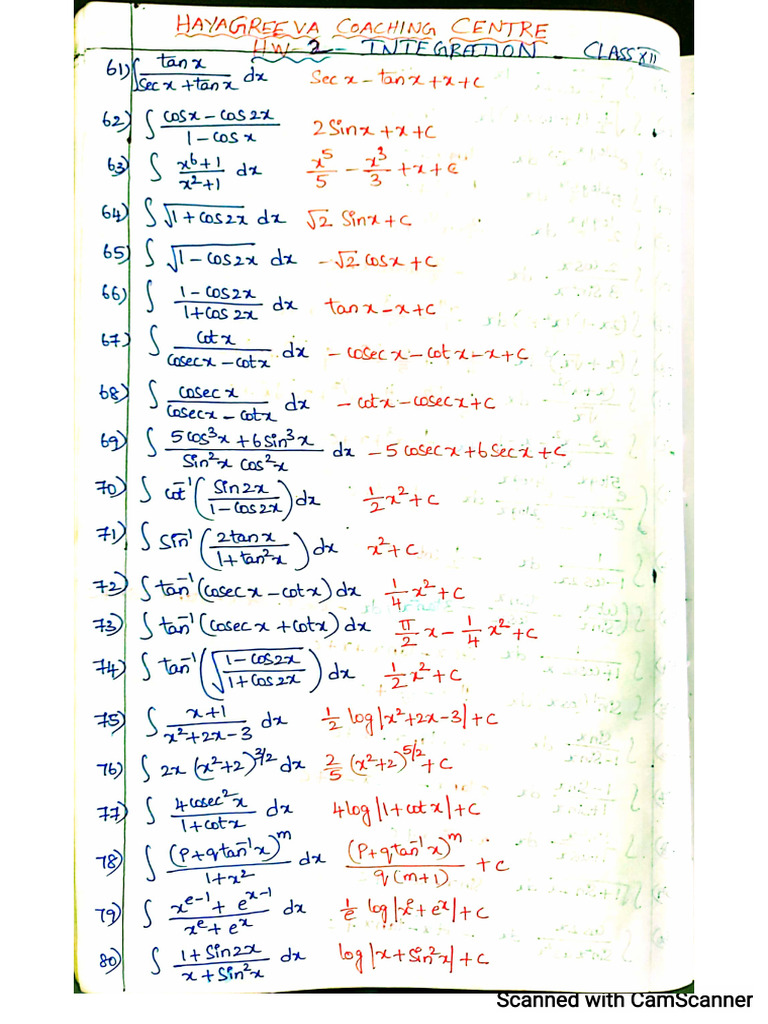 HAYAGREEVA COACHING CENTRE
HW-2 - INTEGRATION CLASS XII
61) ∫ tanx/(secx+tanx) dx Secx - tanx + x + c
62) ∫ (cosx - cos2x)/(1 - cosx) 2Sinx + x + c
63) ∫ (x⁶+1)/(x²+1) dx x⁵/5 - x³/3 + x + c
64) ∫ √(1+cos2x) dx √2 Sinx + c
65) ∫ √(1-cos2x) dx -√2 cosx + c
66) ∫ (1-cos2x)/(1+cos2x) dx tanx - x + c
67) ∫ cotx/(cosecx - cotx) dx - cosecx - cotx - x + c
68) ∫ cosecx/(cosecx - cotx) dx - cotx - cosecx + c
69) ∫ (5cos³x + 6sin³x)/(Sin²x cos²x) dx - 5cosecx + 6Secx + c
70) ∫ cot⁻¹(Sin2x/(1-cos2x)) dx 1/2 x² + c
71) ∫ Sin⁻¹(2tanx/(1+tan²x)) dx x² + c
72) ∫ tan⁻¹(cosecx - cotx) dx 1/4 x² + c
73) ∫ tan⁻¹(cosecx + cotx) dx π/2 x - 1/4 x² + c
74) ∫ tan⁻¹(√((1-cos2x)/(1+cos2x))) dx 1/2 x² + c
75) ∫ (x+1)/(x²+2x-3) dx 1/2 log|x²+2x-3| + c
76) ∫ 2x(x²+2)^(3/2) dx 2/5 (x²+2)^(5/2) + c
77) ∫ 4cosec²x/(1+cotx) dx 4log|1+cotx| + c
78) ∫ (P+qtan⁻¹x)^m/(1+x²) dx (P+qtan⁻¹x)^m/(q(m+1)) + c
79) ∫ (x^(e-1) + e^(x-1))/(x^e + e^x) dx 1/e log|x^e + e^x| + c
80) ∫ (1+Sin2x)/(x+Sin²x) dx log|x+Sin²x| + c
Scanned with CamScanner